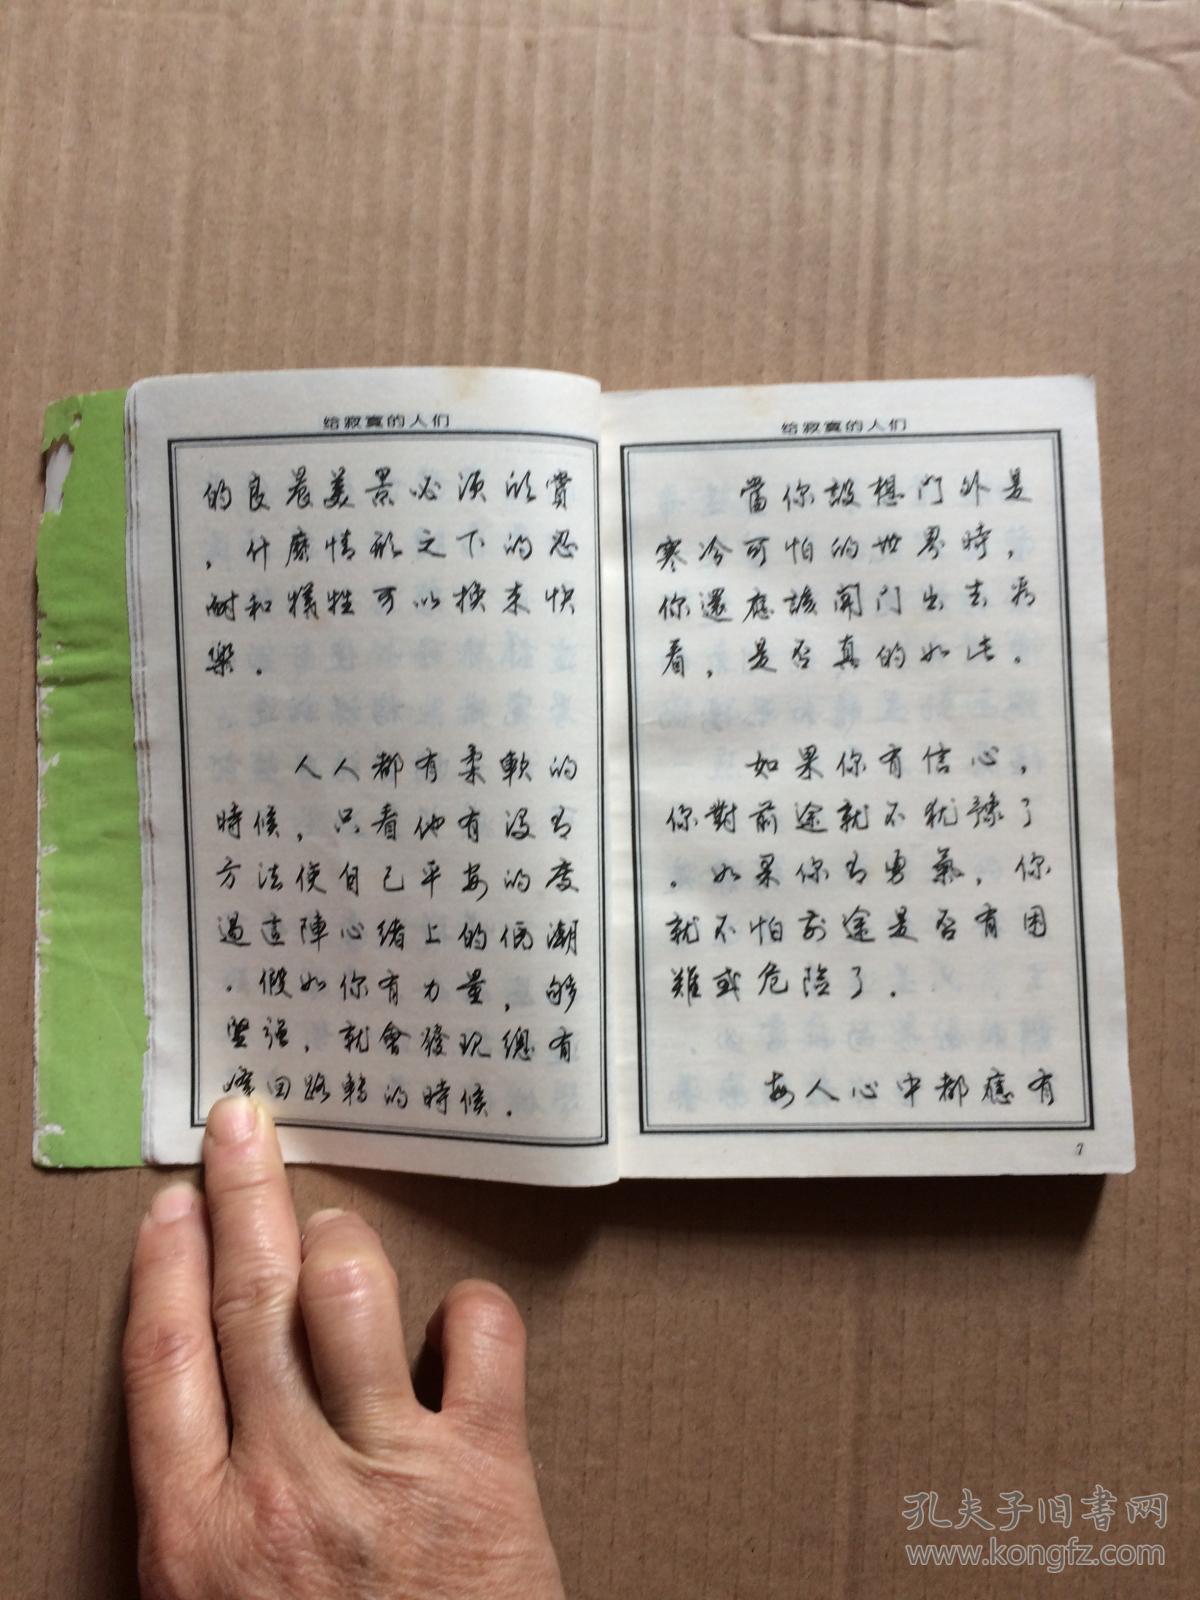 给寂寞的人们
的良晨美景必须欣賞
，什麼情形之下的忍
耐和犧牲可以換来快
樂．
人人都有柔軟的
時候，只看他有没有
方法使自己平安的度
過這陣心緒上的低潮
．假如你有力量，够
堅强，就會發現總有
峰回路轉的時候．
给寂寞的人们
當你設想門外是
寒冷可怕的世界時，
你還應該開門出去看
看，是否真的如此．
如果你有信心，
你對前途就不犹豫了
．如果你有勇氣，你
就不怕前途是否有困
難或危險了．
每人心中都應有
7
孔夫子旧書网
www.kongfz.com